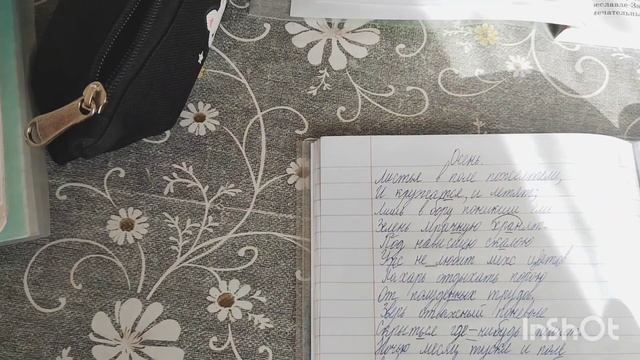 еславле-За
мечательны
Осень.
Листья в поле пожелтели,
И кружатся, и летят;
Лишь в бору поникши ели
Зелень мрачную хранят.
Под нависшею скалою
Уж не любит меж цветов
Пахарь отдыхать порою
От полуденных трудов.
Зверь отважный поневоле
Скрыться где-нибудь
Ночью месяц тускл и поле
InShot